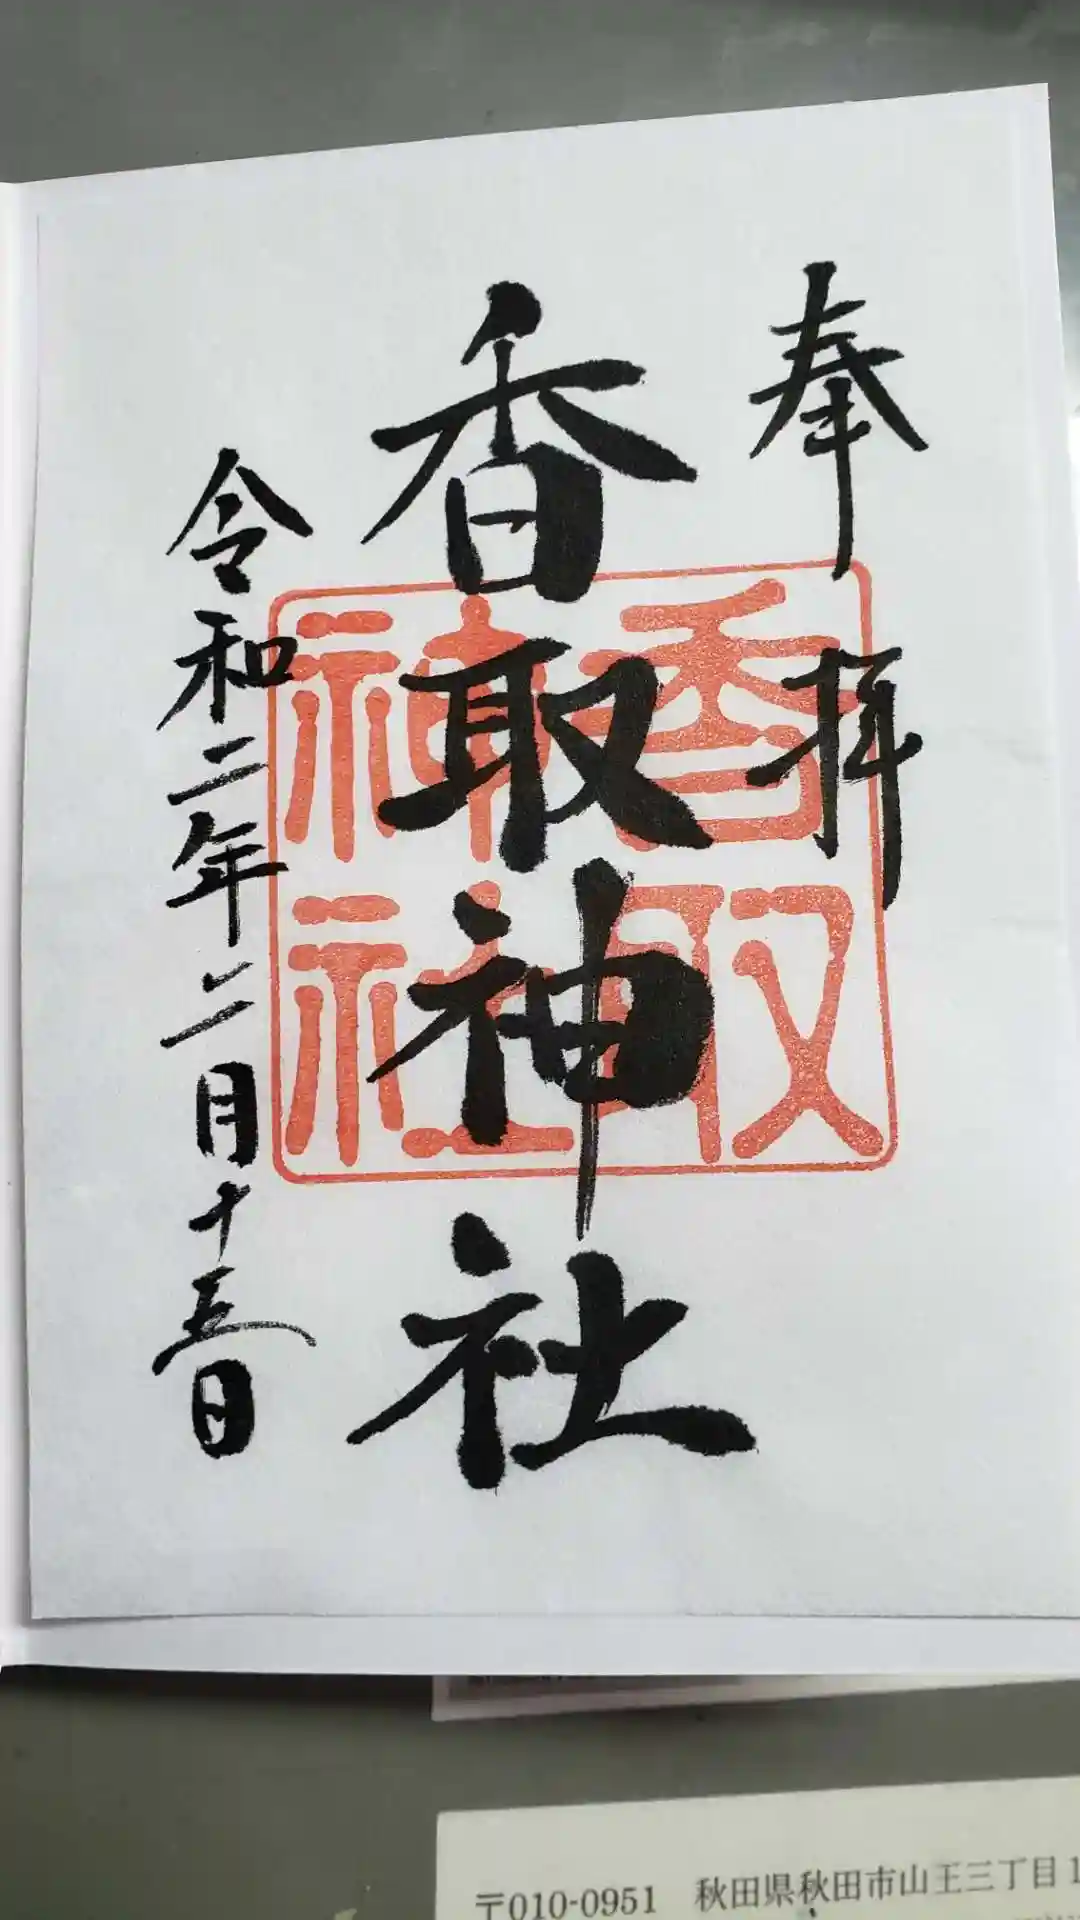 奉拝
香取神社
香取神社
令和二年二月十五日
〒010-0951 秋田県秋田市山王三丁目1